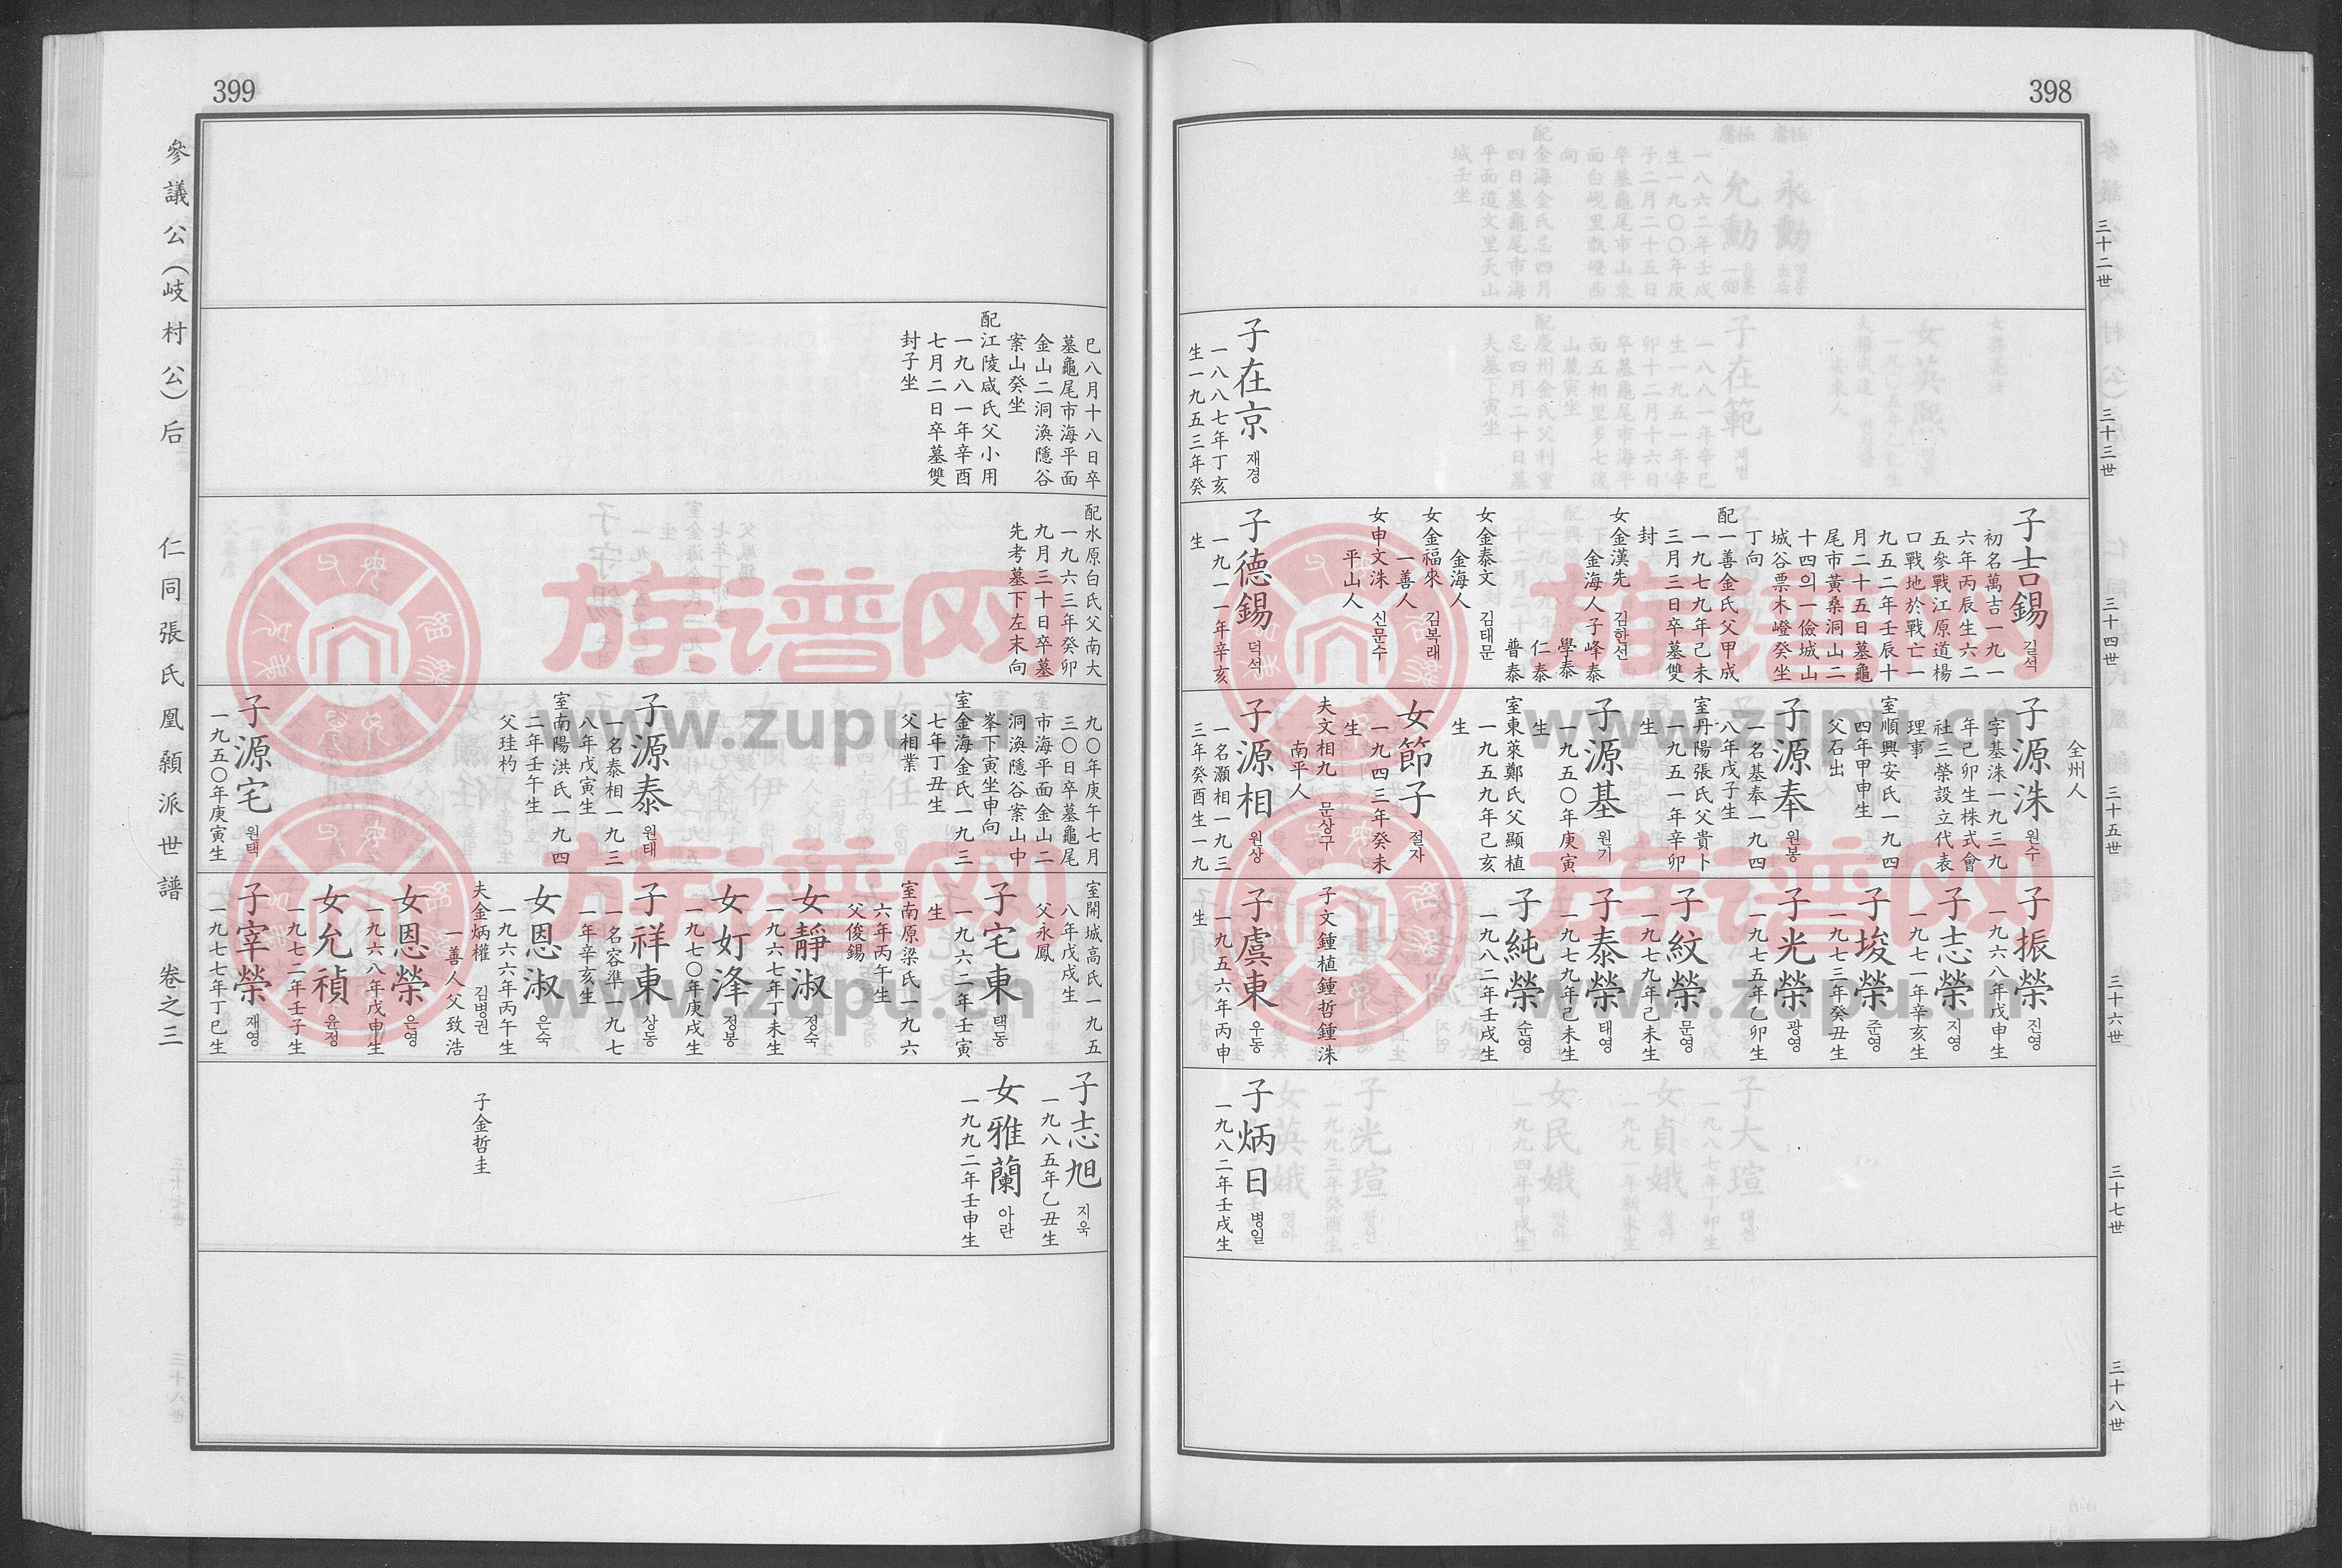 398
三十二世
三十三世
三十四世
三十五世
三十六世
三十七世
三十八世
子在京 재경
一八八七年丁亥
生一九五三年癸
子吉錫 길석
初名萬吉一九一
六年丙辰生六二
五參戰江原道楊
口戰地於戰亡一
九五二年壬辰十
月二十五日墓龜
尾市黃桑洞山二
十四의一儉城山
城谷票木嶝癸坐
丁向
配一善金氏父甲成
一九七九年己未
三月三日卒墓雙
封
女金漢先 김한선
金海人子峰泰
學泰
仁泰
普泰
女金泰文 김태문
金海人
女金福來 김복래
一善人
女申文洙 신문수
平山人
子德錫 덕석
一九一一年辛亥
生
全州人
子源洙 원수
字基洙一九三九
年己卯生株式會
社三榮設立代表
理事
室順興安氏一九四
四年甲申生
父石出
子源奉 원봉
一名基奉一九四
八年戊子生
室丹陽張氏父貴卜
一九五一年辛卯
生
子源基 원기
一九五〇年庚寅
生
室東萊鄭氏父顯植
一九五九年己亥
生
女節子 절자
一九四三年癸未
生
夫文相九 문상구
南平人
子源相 원상
一名灝相一九三
三年癸酉生一九
子振榮 진영
一九六八年戊申生
子志榮 지영
一九七一年辛亥生
子埈榮 준영
一九七三年癸丑生
子光榮 광영
一九七五年乙卯生
女紋榮 문영
一九七九年己未生
子泰榮 태영
一九七九年己未生
子純榮 순영
一九八二年壬戌生
子文鍾植鍾哲鍾洙
子虞東 우동
一九五六年丙申
生
子炳日 병일
一九八二年壬戌生
399
參議公(岐村公)后 仁同張氏凰顙派世譜 卷之三
巳八月十八日卒
墓龜尾市海平面
金山二洞渙隱谷
案山癸坐
配江陵咸氏父小用
一九八一年辛酉
七月二日卒墓雙
封子坐
配水原白氏父南大
一九六三年癸卯
九月三十日卒墓
先考墓下左末向
九〇年庚午七月
三〇日卒墓龜尾
市海平面金山二
洞渙隱谷案山中
峯下寅坐申向
室金海金氏一九三
七年丁丑生
父相業
子源泰 원태
一名泰相一九三
八年戊寅生
室南陽洪氏一九四
二年壬午生
父珪杓
子源宅 원택
一九五〇年庚寅生
室開城高氏一九五
八年戊戌生
父永鳳
子宅東 택동
一九六二年壬寅
生
室南原梁氏一九六
六年丙午生
父俊錫
女靜淑 정숙
一九六七年丁未生
女妌浲 정봉
一九七〇年庚戌生
子祥東 상동
一名容準一九七
一年辛亥生
女恩淑 은숙
一九六六年丙午生
夫金炳權 김병권
一善人父致浩
女恩榮 은영
一九六八年戊申生
女允禎 윤정
一九七二年壬子生
子宰榮 재영
一九七七年丁巳生
子志旭 지욱
一九八五年乙丑生
女雅蘭 아란
一九九二年壬申生
子金哲圭
族谱网
www.zupu.cn
族谱网
www.zupu.cn
族谱网
www.zupu.cn
族谱网
www.zupu.cn